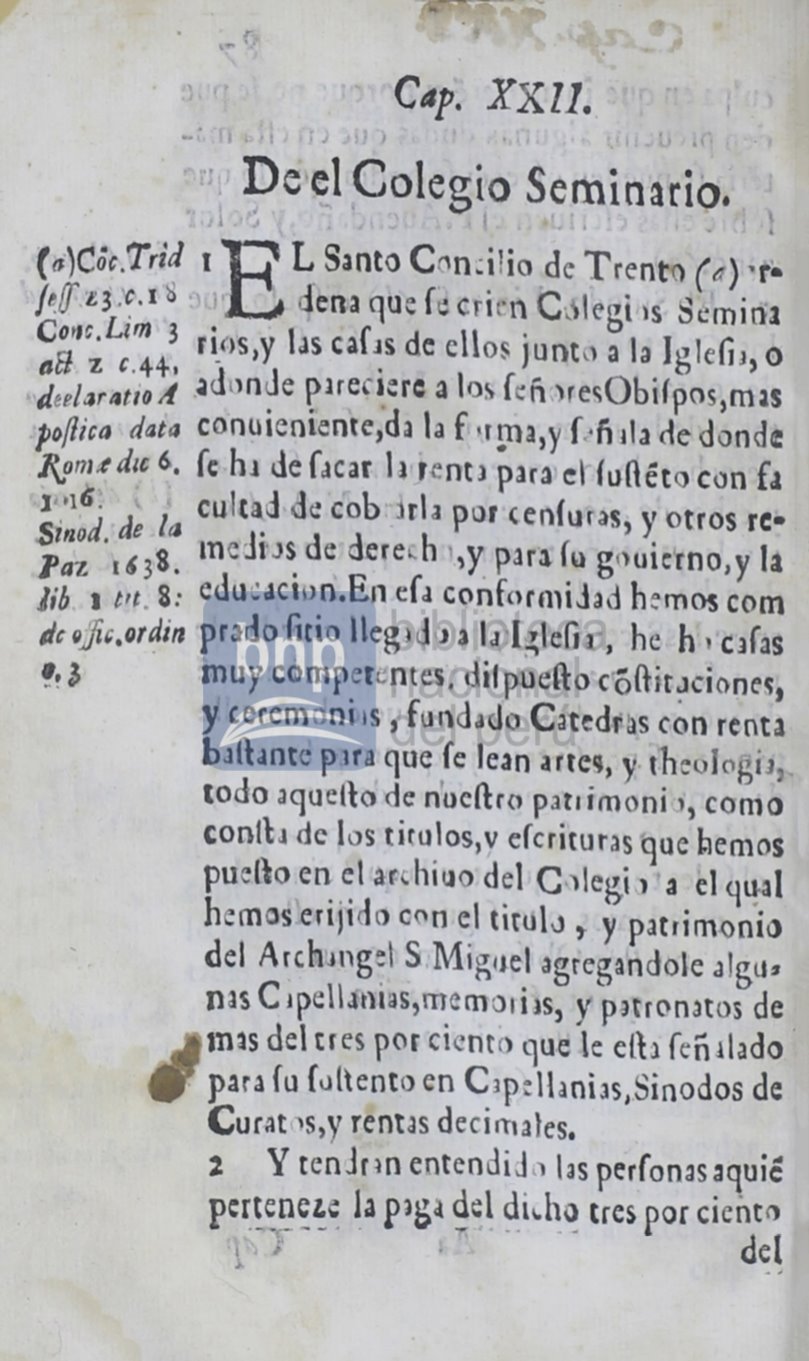 Cap. XXII.
De el Colegio Seminario.
(a)Cõc.Trid
ſeſſ 23.c.18
Conc.Lim 3
act 2 c.44,
declaratio A
poſtica data
Romæ die 6.
Sinod. de la
Paz 1638.
lib 1 tit. 8:
de offic.ordin
0. 3
1 EL Santo Concilio de Trento (a) or-
dena que ſe crien Colegios Semina
rios,y las caſas de ellos junto a la Igleſia, o
adonde pareciere a los ſeñoresObiſpos,mas
conuieniente,da la forma,y ſeñala de donde
ſe ha de ſacar la renta para el ſuſtẽto con fa
cultad de cobrarla por cenſuras, y otros re-
medios de derecho,y para ſu gouierno,y la
educacion.En eſa conformidad hemos com
prado ſitio llegado a la Igleſia, hecho caſas
muy competentes, diſpueſto cõſtituciones,
y ceremonias, fundado Catedras con renta
baſtante para que ſe lean artes, y theologia,
todo aqueſto de nueſtro patrimonio, como
conſta de los titulos,y eſcrituras que hemos
pueſto en el archiuo del Colegio a el qual
hemos erijido con el titulo, y patrimonio
del Archangel S Miguel agregandole algu-
nas Capellanias,memorias, y patronatos de
mas del tres por ciento que le eſta ſeñalado
para ſu ſuſtento en Capellanias,Sinodos de
Curatos,y rentas decimales.
2 Y tendran entendido las perſonas aquiẽ
perteneze la paga del dicho tres por ciento
del
bnp biblioteca
nacional
del perú